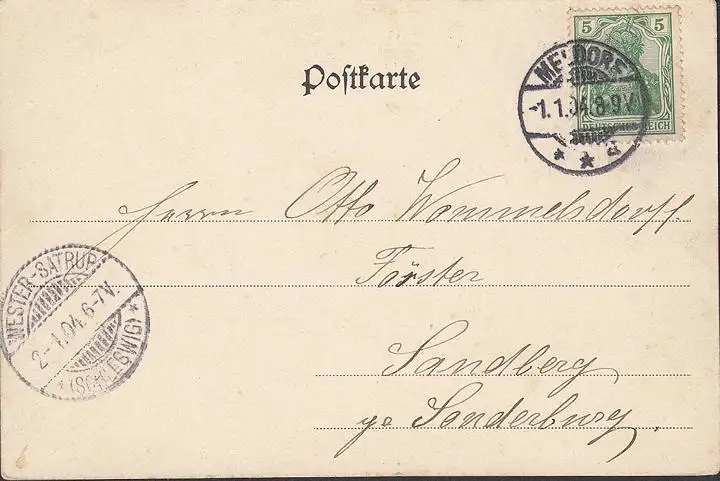 Postkarte
5 5
DEUTSCHES REICH
MELDORF
-1.1.04.8-9V.
* * a
Herrn Otto Wommelsdorff.
Förster
Sandberg
pr Sonderburg.
WESTER-SATRUP
2-1.04.6-7V.
* (SCHLESWIG) *